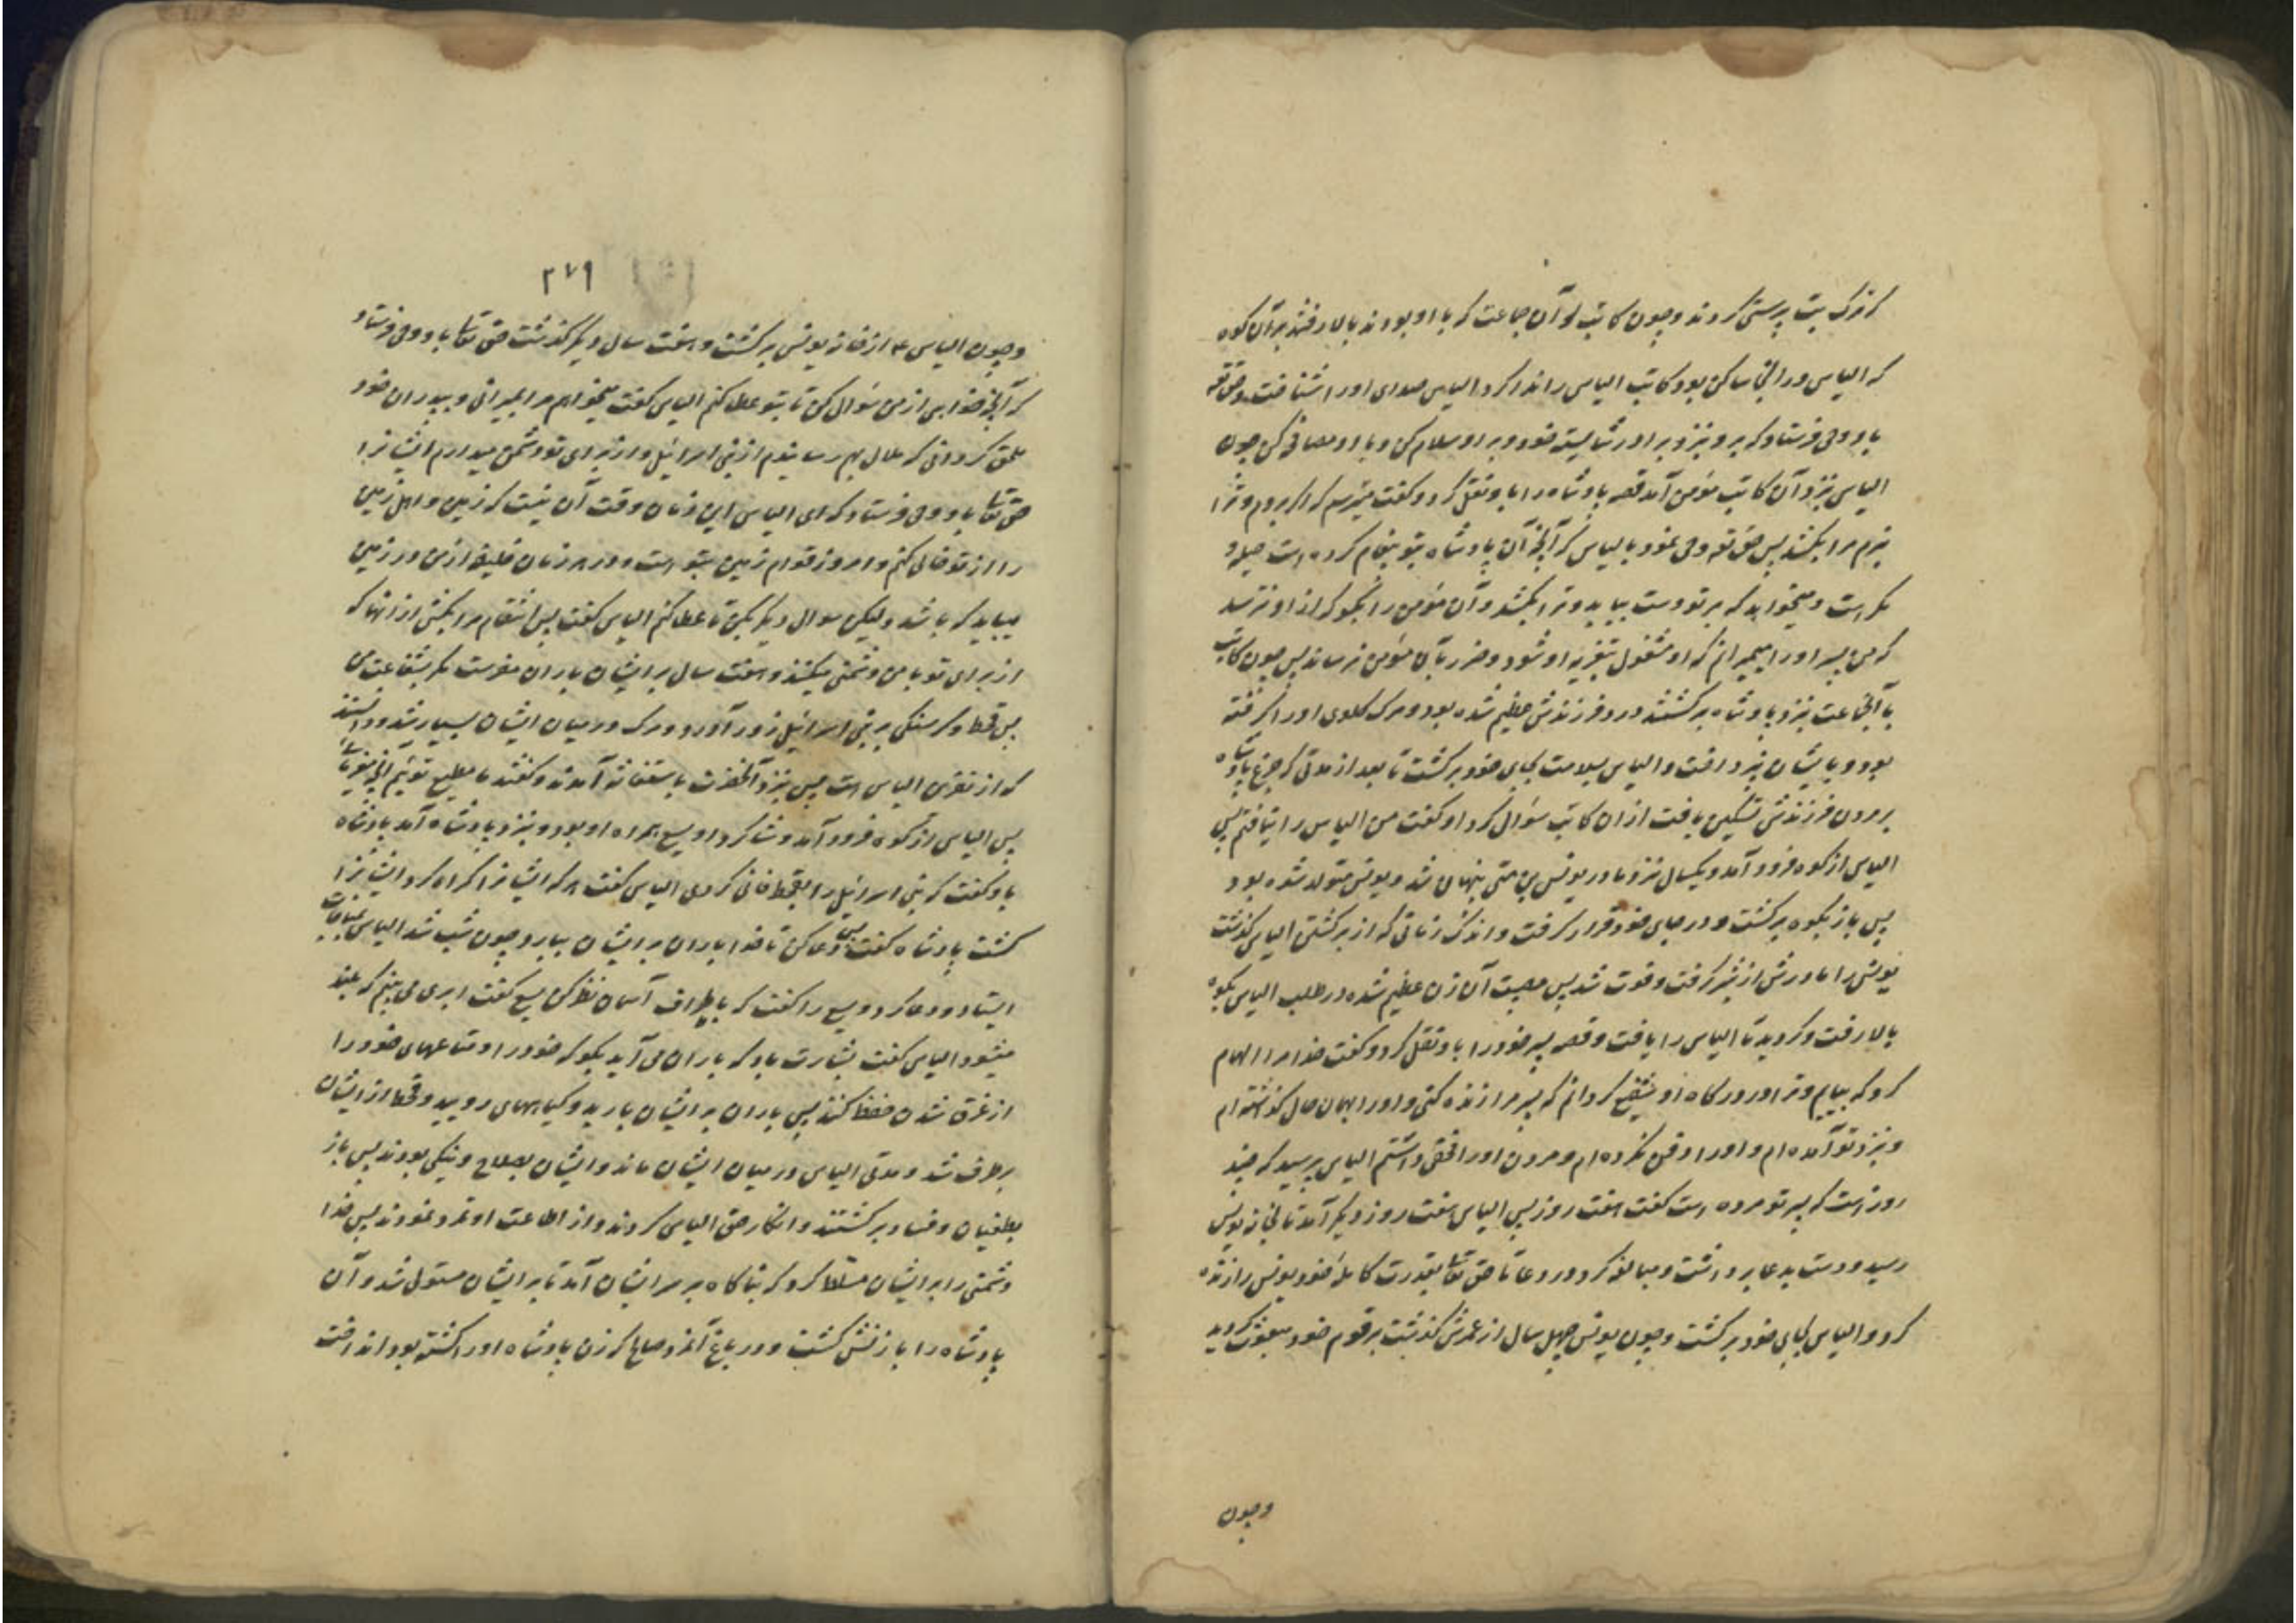 که ترک بت پرستی کردند و چون کاتب و آن جماعت که با او بودند بالا رفتند بر آن کوه
که الیاس در انجا ساکن بود کاتب الیاس را ندا کرد الیاس صدای او را شناخت و حق تعه
باو وحی فرستاد که برو بنزد برادر شایسته خود و بر او سلام کن و با او مصافحه کن چون
الیاس بنزد آن کاتب مؤمن آمد قصه پادشاه را باو نقل کرد و گفت میترسم که اگر بروم و ترا
نبرم مرا بکشد پس حق تعه وحی نمود بالیاس که آنچه آن پادشاه بتو پیغام کرده است حیله و
مکر است و میخواهد که بر تو دست بیابد و ترا بکشد و آن مؤمن را بگو که از او نترسد
که من پسر او را میمیرانم که او مشغول بتعزیه او شود و ضرر بآن مؤمن نرساند پس چون کاتب
با آنجماعت بنزد پادشاه برگشتند درد فرزندش عظیم شده بود و مرک گلوی او را گرفته
بود و بایشان نپرداخت و الیاس بسلامت بجای خود برگشت تا بعد از مدتی که جزع پادشاه
بر مردن فرزندش تسکین یافت از ان کاتب سؤال کرد او گفت من الیاس را نیافتم پس
الیاس از کوه فرود آمد و یکسال نزد مادر یونس بن متی پنهان شد و یونس متولد شده بود
پس باز بکوه برگشت و در جای خود قرار گرفت و اندک زمانی که از برگشتن الیاس گذشت
یونس را مادرش از شیر گرفت و فوت شد پس مصیبت آن زن عظیم شده در طلب الیاس بکوه
بالا رفت و گردید تا الیاس را یافت و قصه پسر خود را باو نقل کرد و گفت خدا مرا الهام
کرد که بیایم و ترا در درگاه او شفیع گردانم که پسر مرا زنده کنی و او را بهمان حال گذاشته ام
و بنزد تو آمده ام و او را دفن نکرده ام و مردن او را مخفی داشتم الیاس پرسید که چند
روز است که پسر تو مرده است گفت هفت روز پس الیاس هفت روز دیگر آمد تا بخانه یونس
رسید و دست بدعا برداشت و مبالغه کرد در دعا تا حق تعالی بقدرت کامله خود یونس را زنده
کرد و الیاس بجای خود برگشت و چون یونس چهل سال از عمرش گذشت بر قوم خود مبعوث گردید
وچون
۳۷۹
وچون الیاس ع از خانه یونس برگشت و هفت سال دیگر گذشت حق تعالی باو وحی فرستاد
که آنچه خواهی از من سؤال کن تا بتو عطا کنم الیاس گفت میخواهم مرا بمیرانی و بپدران خود
ملحق گردانی که ملال بهم رسانیدم از بنی اسرائیل و از برای تو دشمن میدارم ایشانرا
حق تعالی باو وحی فرستاد که ای الیاس این زمان وقت آن نیست که زمین و اهل زمین
را از تو خالی کنم و امروز قوام زمین بتو است و در هر زمان خلیفه از من در زمین
میباید که باشد ولیکن سوال دیگر بکن تا عطا کنم الیاس گفت پس انتقام مرا بکش از انها که
از برای تو با من دشمنی میکنند و هفت سال بر ایشان باران مفرست مگر بشفاعت من
پس قحط و گرسنگی بر بنی اسرائیل زور آورد و مرک در میان ایشان بسیار شد و دانستند
که از نفرین الیاس است پس بنزد آنحضرت باستغاثه آمدند و گفتند ما مطیع توئیم آنچه میفرمائی
پس الیاس از کوه فرود آمد و شاگرد او یسع همراه او بود و بنزد پادشاه آمد پادشاه
باو گفت که بنی اسرائیل را بقحط فانی کردی الیاس گفت هر که ایشانرا گمراه کرد ایشانرا
کشت پادشاه گفت پس دعا کن تا خدا باران بر ایشان ببارد چون شب شد الیاس بمناجات
ایستاد و دعا کرد و یسع را گفت که باطراف آسمان نظر کن یسع گفت ابری می بینم که بلند
میشود الیاس گفت بشارت باد که باران می آید بگو که خود را و متاعهای خود را
از غرق شدن حفظ کنند پس باران بر ایشان بارید و گیاههای روئید و قحط از ایشان
برطرف شد و مدتی الیاس در میان ایشان ماند و ایشان بصلاح و نیکی بودند پس باز
بطغیان و فساد برگشتند و انکار حق الیاس کردند و از اطاعت او تمرد نمودند پس خدا
دشمنی را بر ایشان مسلط کرد که بناگاه بر سر ایشان آمد تا بر ایشان مستولی شد و آن
پادشاه را با زنش کشت و در باغ آنمرد صالح که زن پادشاه او را کشته بود انداخت